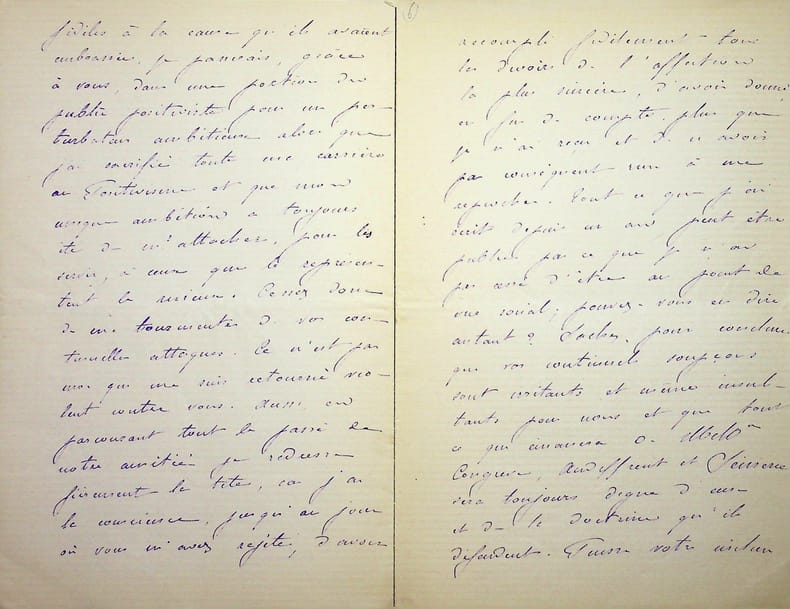 (6)
fidèles à la cause qu'ils avaient
embrassée, je passais, grâce
à vous, dans une portion du
public positiviste pour un per-
turbateur ambitieux alors que
j'ai sacrifié toute ma carrière
au Positivisme et que mon
unique ambition a toujours
été de m'attacher, pour les
servir, à ceux que le représen-
tent le mieux. Cessez donc
de me tourmenter de vos con-
tinuelles attaques. Ce n'est pas
moi qui me suis retourné vio-
lent contre vous. Aussi en
parcourant tout le passé de
notre amitié je redresse
fièrement la tête, car j'ai
la conscience, jusqu'au jour
où vous m'avez rejeté, d'avoir
accompli fidèlement tous
les devoirs de l'affection
la plus sincère, d'avoir donné,
en fin de compte, plus que
je n'ai reçu et de n'avois
par conséquent rien à me
reprocher. Tout ce que j'ai
écrit depuis un an peut être
publié par ce que je n'ai
pas cessé d'être au point de
vue social; pouvez-vous en dire
autant? Sachez, pour conclure
que vos continuels soupçons
sont irritants et même insul-
tants pour nous et que tout
ce qui émanera de
Congreve, Audiffrent et Sémerie
sera toujours digne d'eux
et de la doctrine qu'ils
défendent. Puisse votre